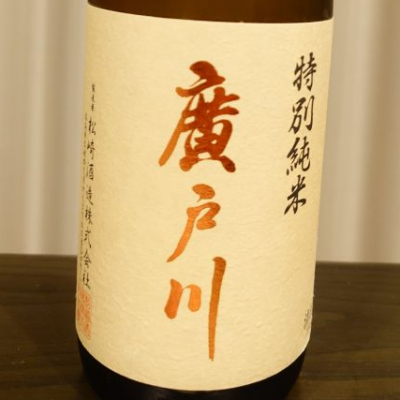 特別純米
廣戸川
松崎酒造株式会社